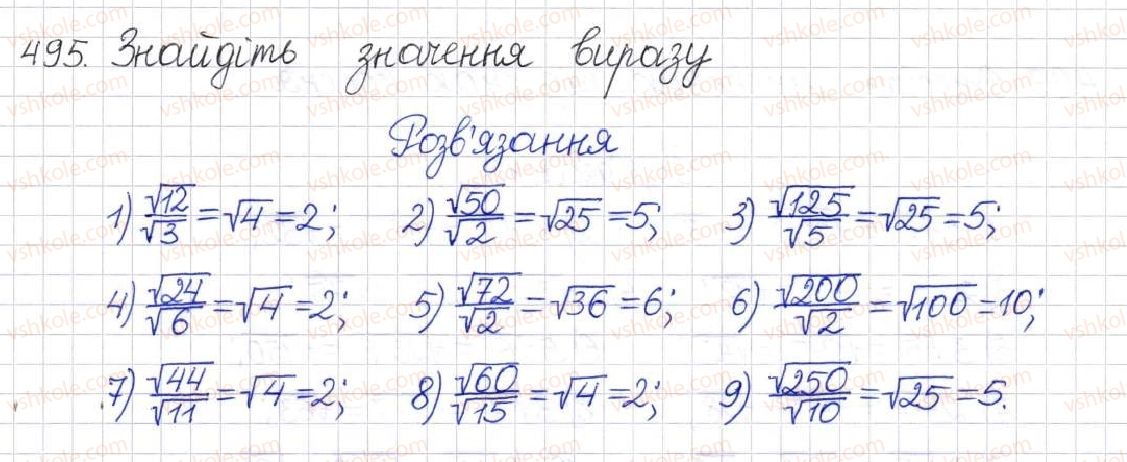 495. Знайдіть значення виразу
Розв'язання
1) √12/√3 = √4 = 2; 2) √50/√2 = √25 = 5; 3) √125/√5 = √25 = 5;
4) √24/√6 = √4 = 2; 5) √72/√2 = √36 = 6; 6) √200/√2 = √100 = 10;
7) √44/√11 = √4 = 2; 8) √60/√15 = √4 = 2; 9) √250/√10 = √25 = 5.
vshkole.com